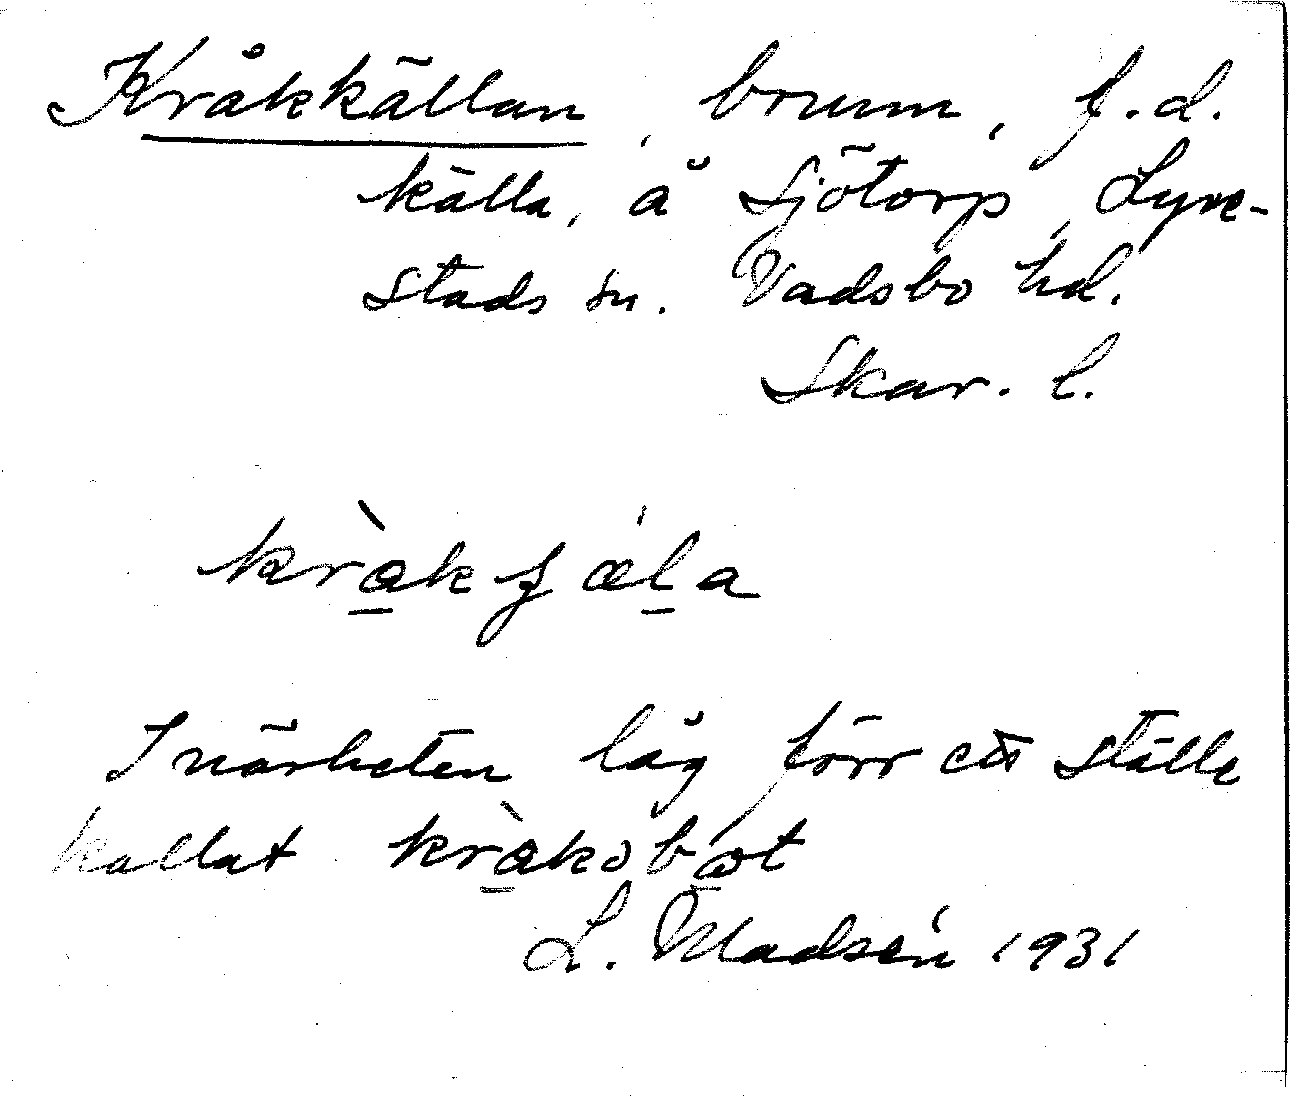 Kråkkällan, brunn, f.d.
källa, å Sjötorp, Lyre-
stads sn. Vadsbo hd.
Skar. l.
kràkʃæ̍la
I närheten låg förr ett ställe
kallat kràkobæ̍t
L. Madsén 1931